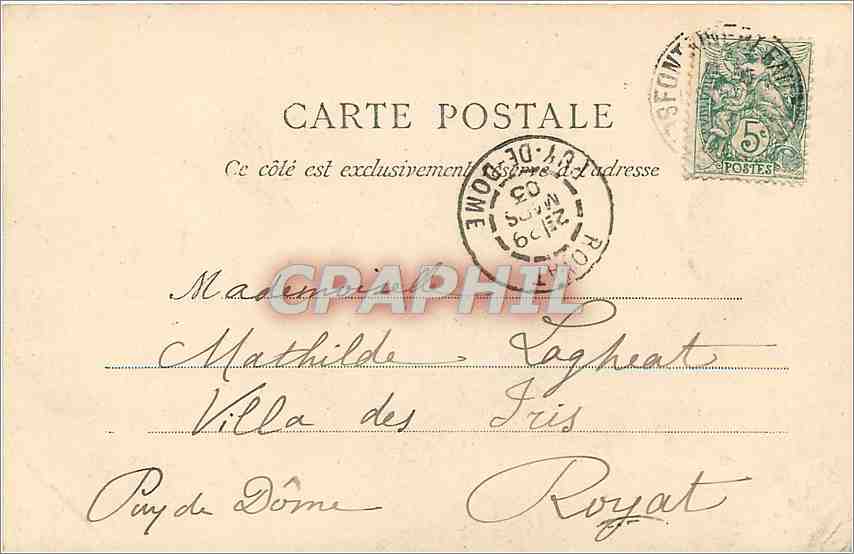 CARTE POSTALE
Ce côté est exclusivement réservé à l'adresse
5c
POSTES
ROYAT PUY-DE-DOME
2E 29
MARS
03
CPAPHIL
Mademoiselle
Mathilde Lagheat
Villa des Iris
Puy de Dôme Royat